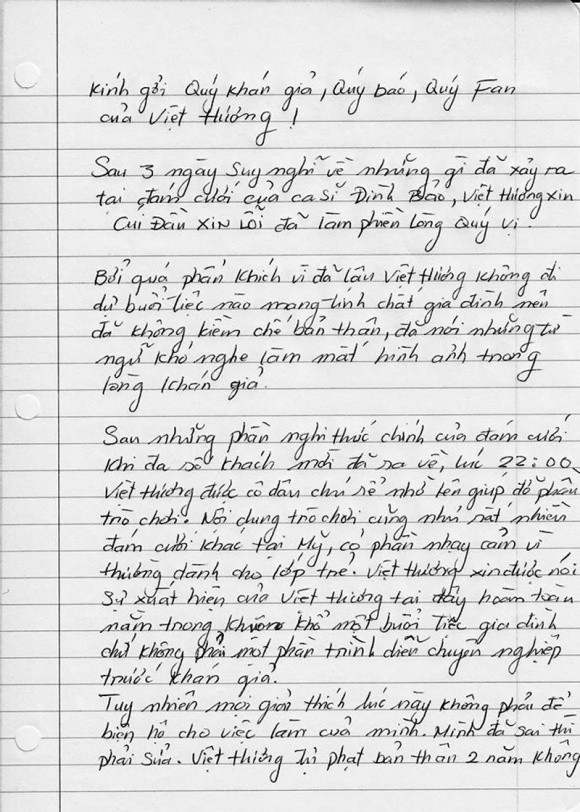 Kính gởi Quý khán giả, Quý báo, Quý Fan
của Việt Hương !
Sau 3 ngày suy nghĩ về những gì đã xảy ra
tại đám cưới của ca sĩ Đình Bảo, Việt Hương xin
CÚI ĐẦU XIN LỖI đã làm phiền lòng Quý vị.
Bởi quá phấn khích vì đã lâu Việt Hương không đi
dự buổi tiệc nào mang tính chất gia đình nên
đã không kiềm chế bản thân, đã nói những từ
ngữ khó nghe làm mất hình ảnh trong
lòng khán giả.
Sau những phần nghi thức chính của đám cưới
khi đa số khách mời đã ra về, lúc 22:00,
Việt Hương được cô dâu chú rể nhờ lên giúp đỡ phần
trò chơi. Nội dung trò chơi cũng như rất nhiều
đám cưới khác tại Mỹ, có phần nhạy cảm vì
thường dành cho lớp trẻ. Việt Hương xin được nói
Sự xuất hiện của Việt Hương tại đây hoàn toàn
nằm trong khuôn khổ một buổi tiệc gia đình
chứ không phải một phần trình diễn chuyên nghiệp
trước khán giả.
Tuy nhiên mọi giải thích lúc này không phải để
biện hộ cho việc làm của mình. Mình đã sai thì
phải sửa. Việt Hương tự phạt bản thân 2 năm không